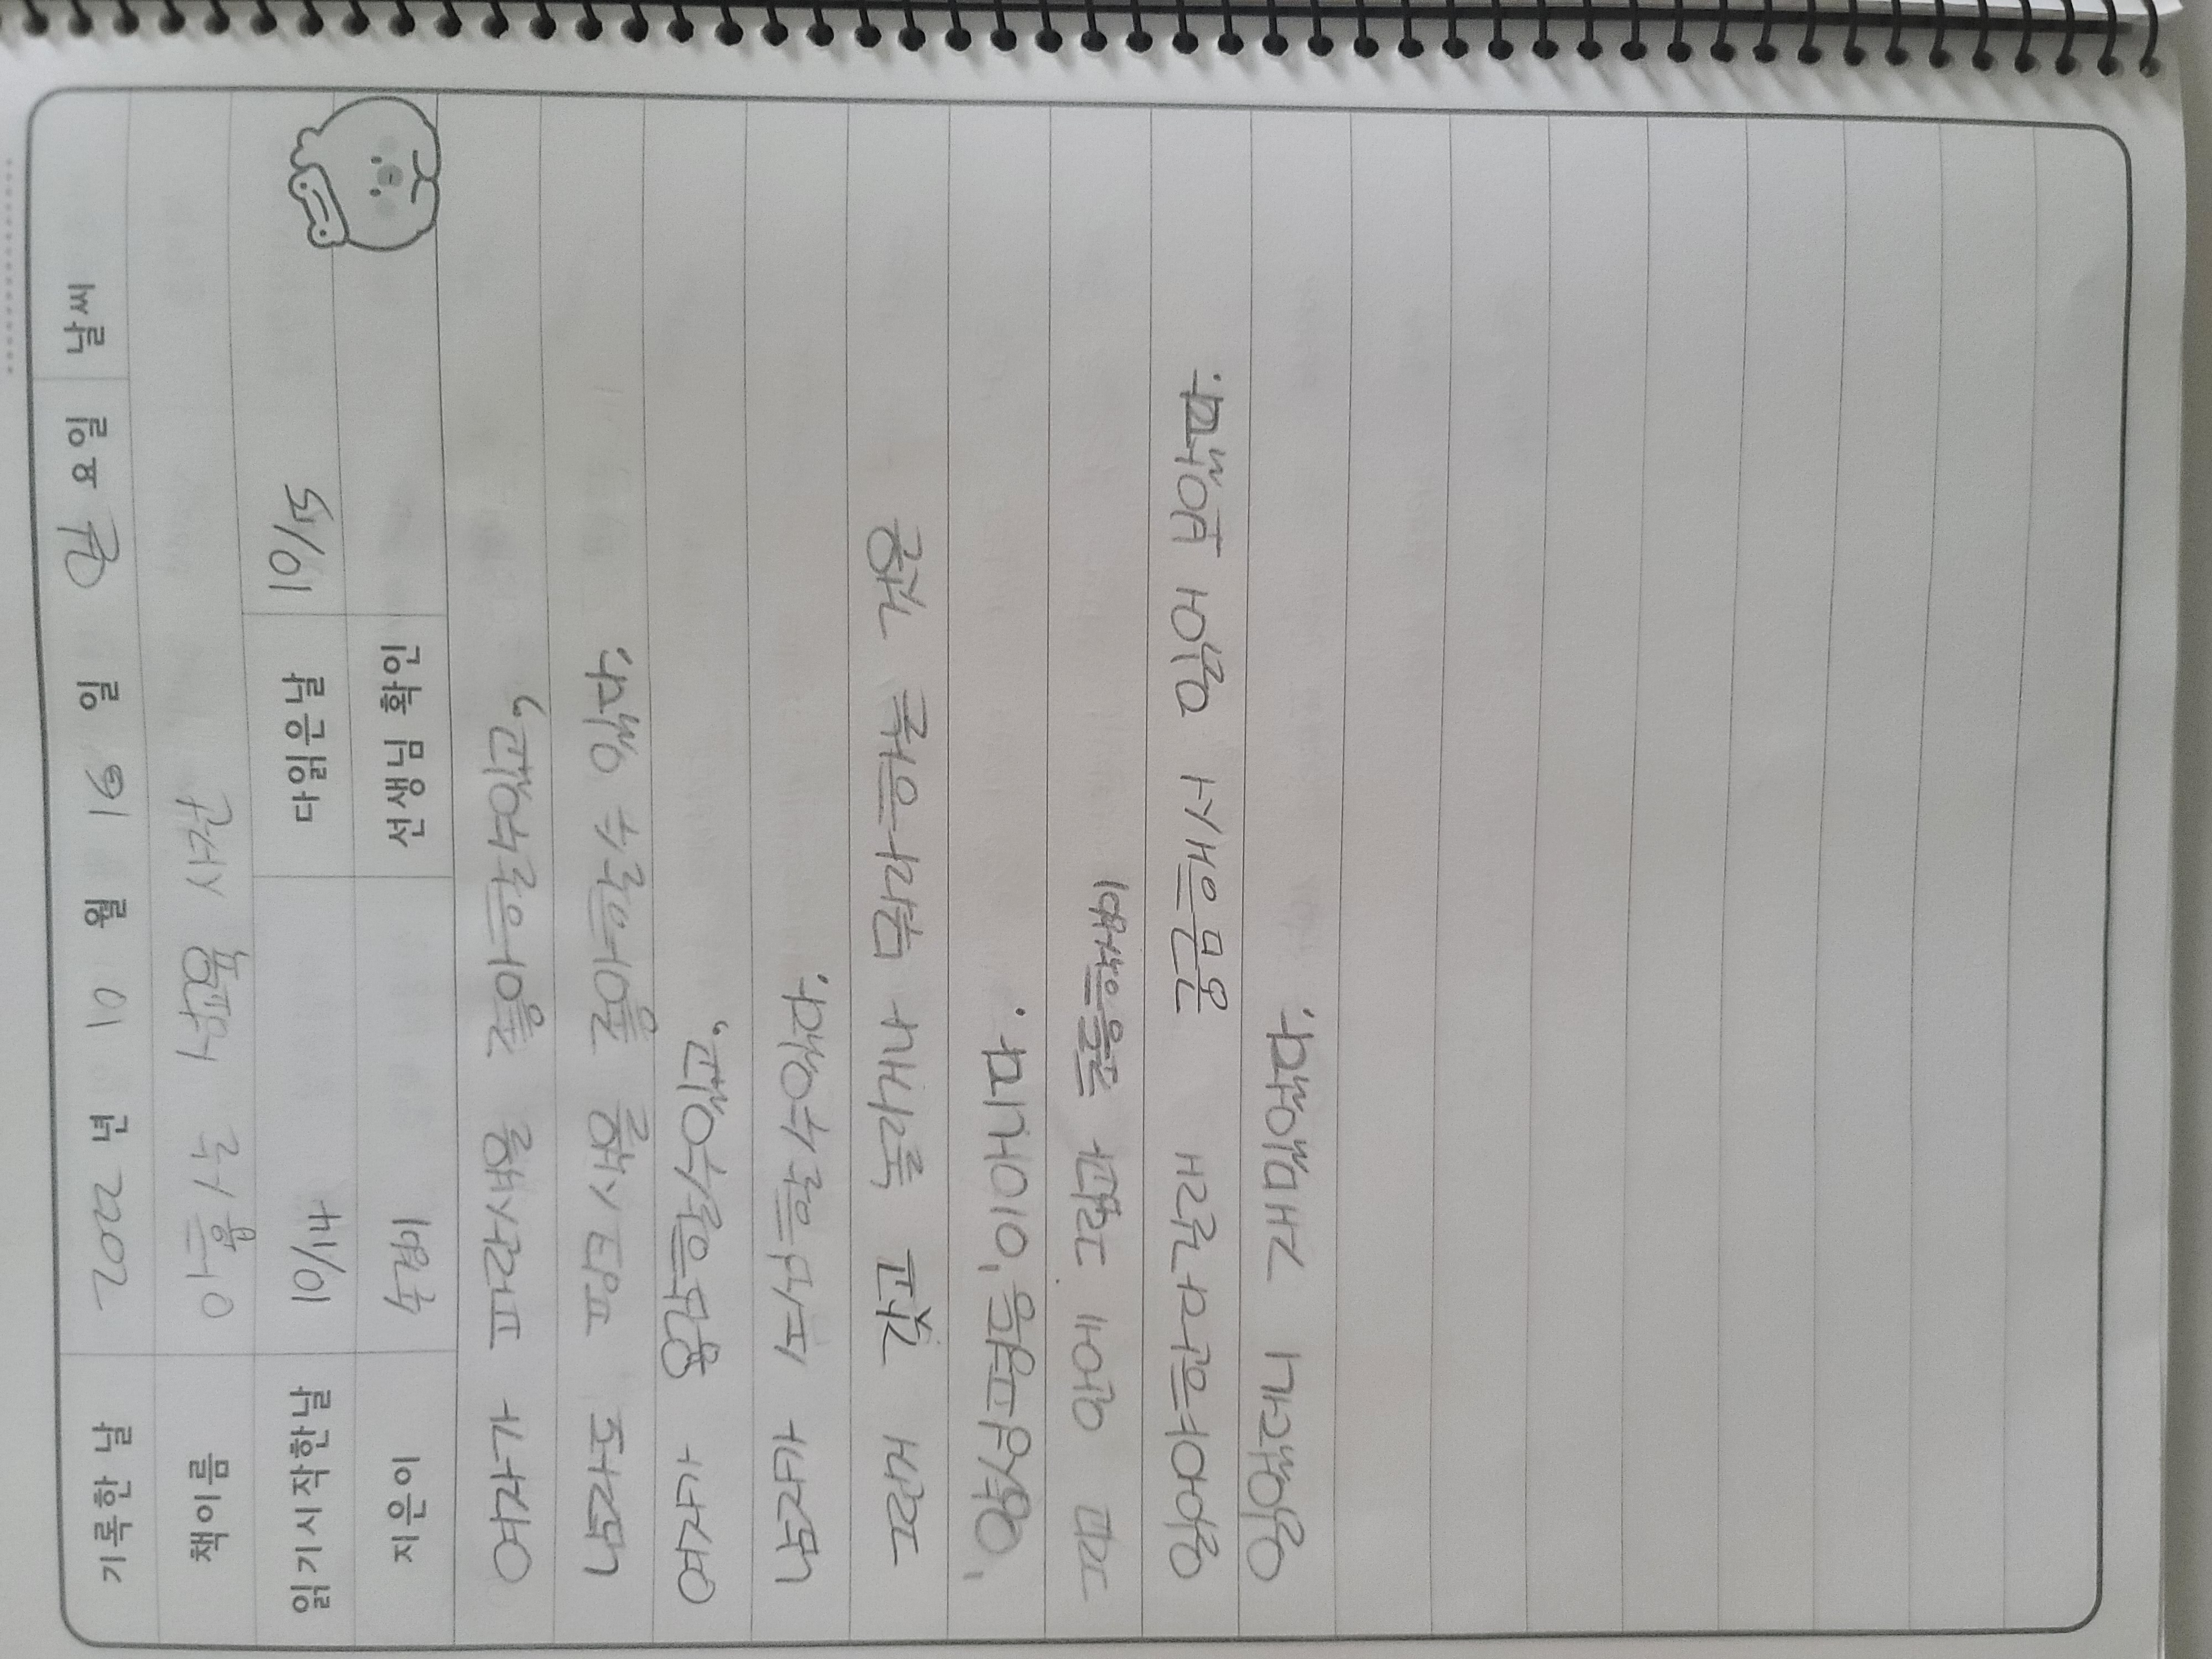 기록한 날 2202 년 01 월 일 금 요일 날씨
책이름 사전
읽기시작한날 10/14 다읽은날 10/15
지은이 손경이 선생님 확인
여자가 파란색을 좋아할수있고,
남자도 핑크색을 좋아할수 있다.
여자가 용감할수있고,
남자가 할수있다.
그런거 갖고 놀리거나 뭐라하는 것은
'양성평등'이아니다.
그리고 안에 그림과 초등학생이
읽어야한다길래 궁금해서 읽어 보았다.
읽었더니 재밌었다.